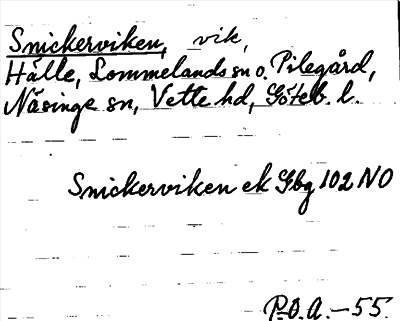 Snickerviken, vik,
Hälle, Lommelands sn o. Pilegård,
Näsinge sn, Vette hd, Göteb. l.
Snickerviken ek Gbg 102 NO
P.O.A. -55.